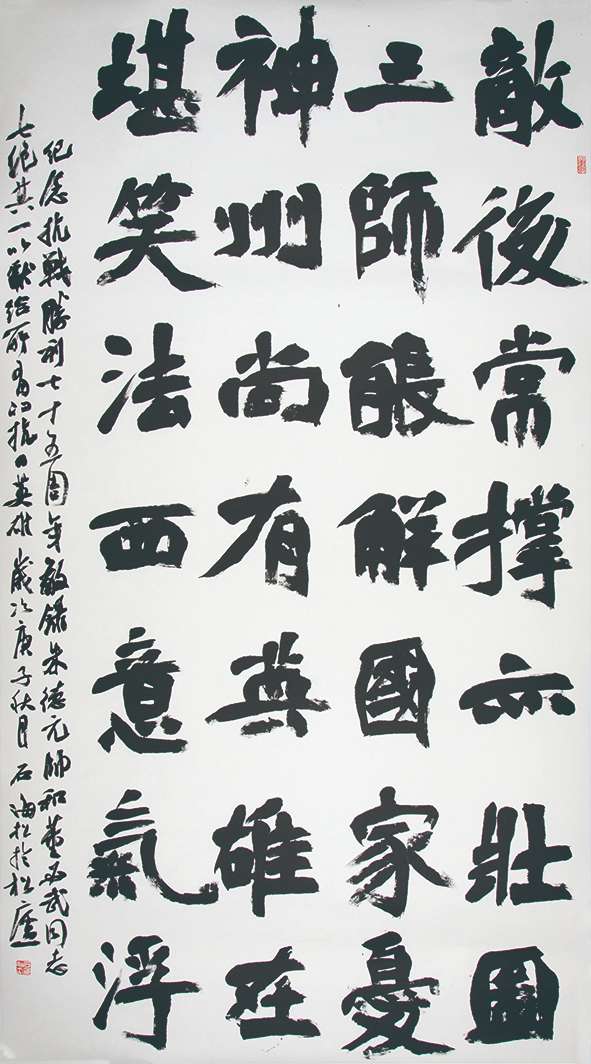 敵後常撑亦壯圖
三師能解國家憂
神州尚有英雄在
堪笑法西意氣浮
紀念抗戰勝利七十五周年敬錄朱德元帥和董必武同志
七絕其一以獻給所有的抗日英雄 歲次庚子秋月 石海松於松廬